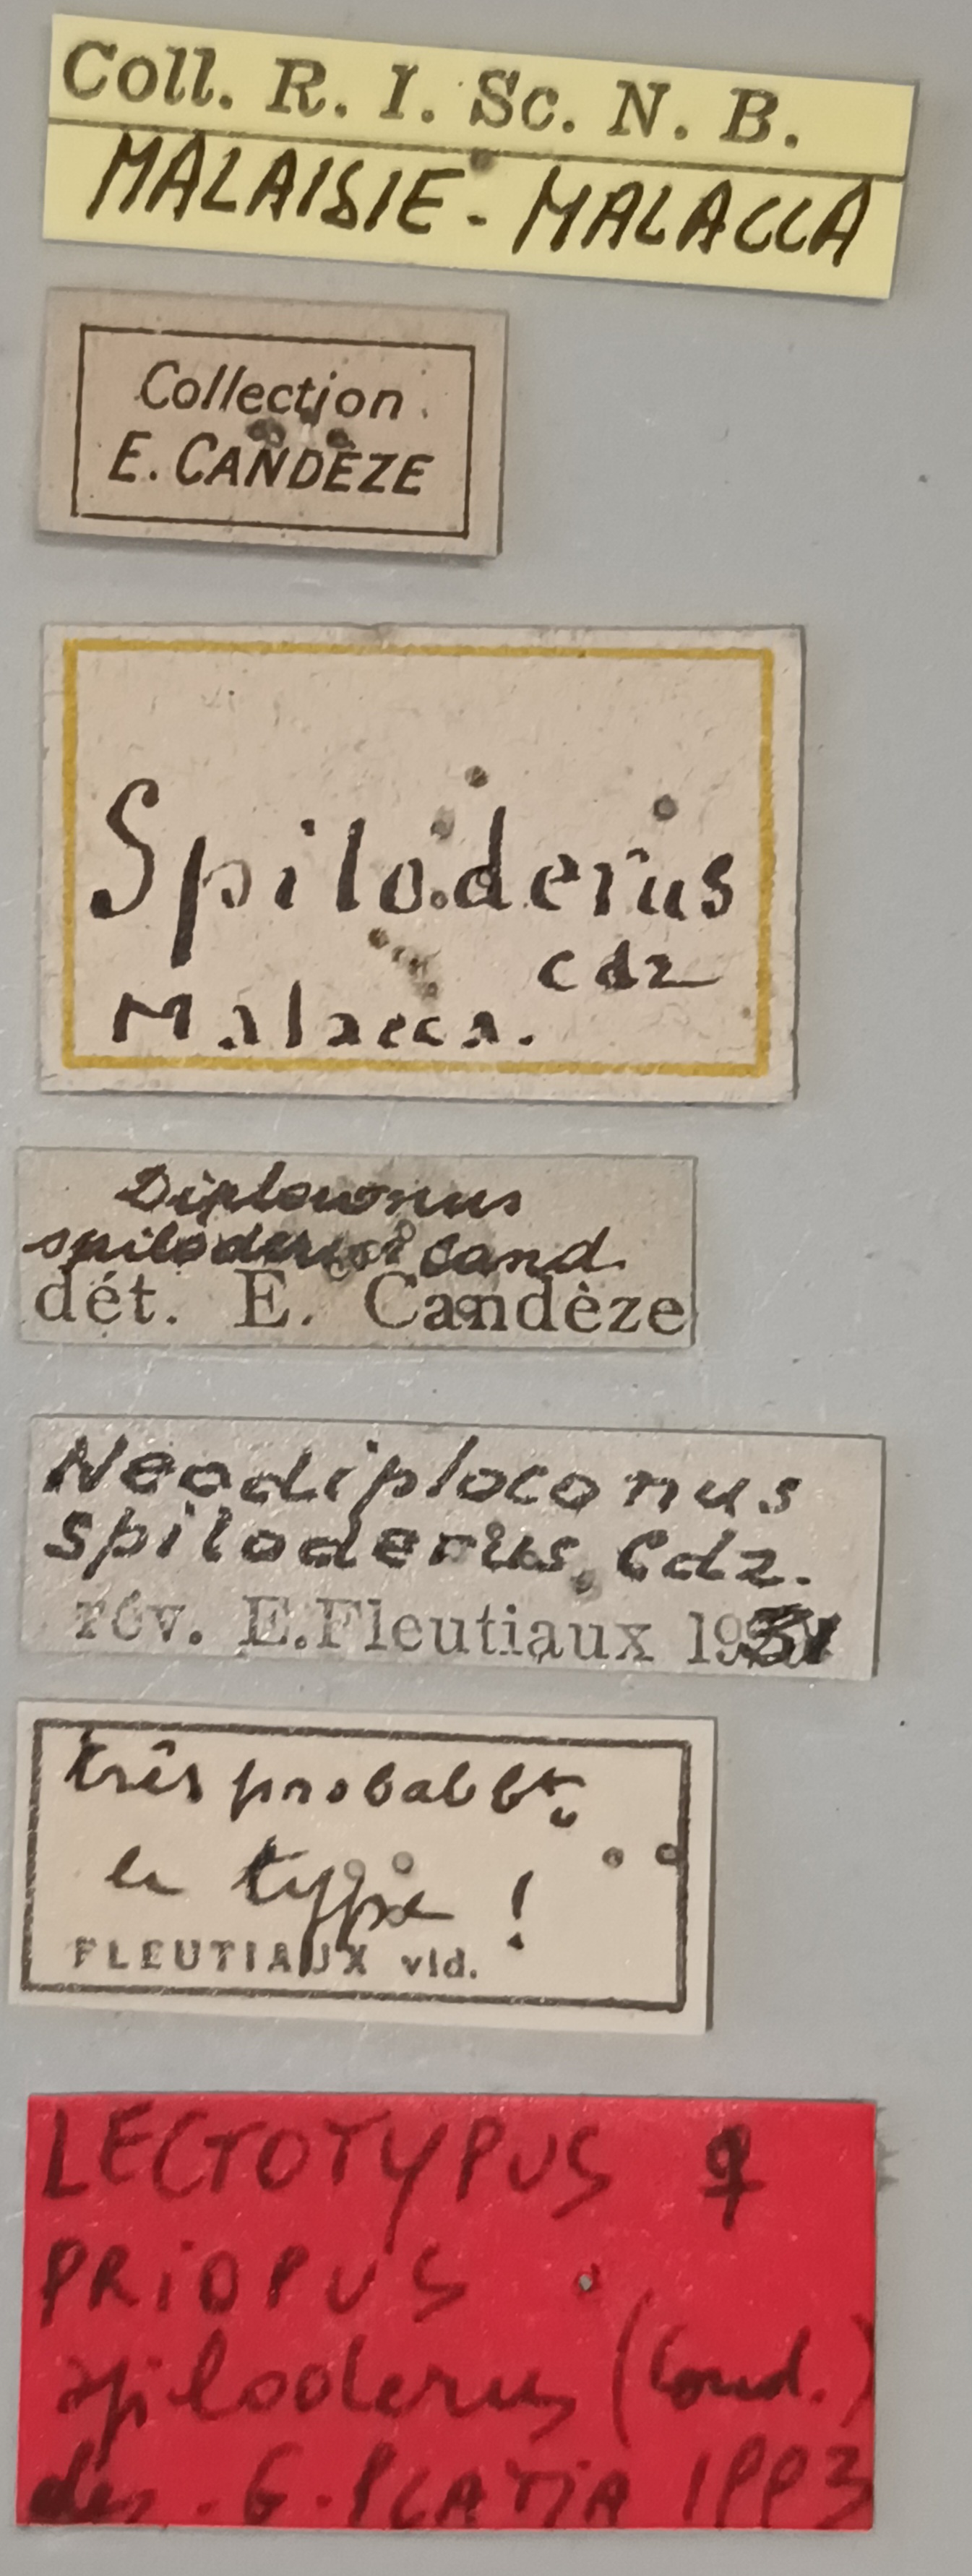 Coll. R. I. Sc. N. B.
MALAISIE - MALACCA
Collection
E. CANDÈZE
Spiloderus
cdz
Malacca.
Diploconus
spiloderus Cand.
dét. E. Candèze
Neodiploconus
spiloderus, Cdz.
rév. E.Fleutiaux 1931
très probablt
le type !
FLEUTIAUX vid.
LECTOTYPUS ♀
PRIOPUS
spiloderus (Cand.)
des. G. PLATIA 1993